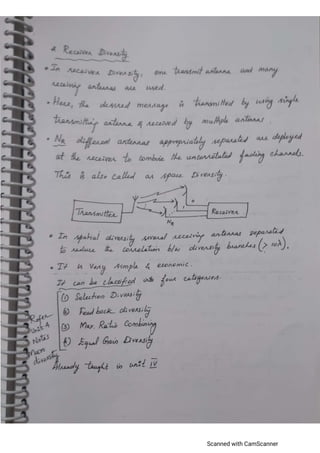 a Receiver Diversity
• In receiver Diversity, one transmit antenna and many
receiving antennas are used.
• Here, the desired message is transmitted by using single
transmitting antenna & received by multiple antennas.
• NR different antennas appropriately separated are deployed
at the receiver to combine the uncorrelated fading channels.
This is also called as space Diversity.
Transmitter
NR
Receiver
• In spatial diversity several receiving antennas separated
to reduce the correlation b/w diversity branches (> 10λ).
• It is very simple & economic.
It can be classified into four categories.
(1) Selection Diversity
(2) Feed back diversity
(3) Max. Ratio Combining
(4) Equal Gain Diversity
Refer
Unit 4
Notes
Macro
diversity
Already taught in unit IV
Scanned with CamScanner